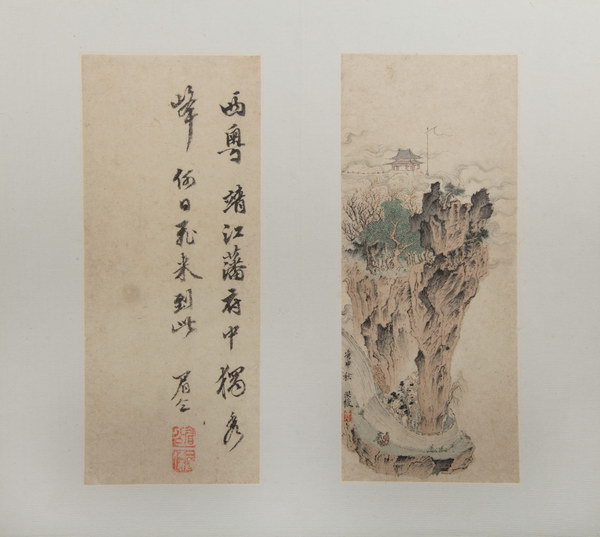 西粤靖江藩府中獨秀
峰何日飛來到此
眉公